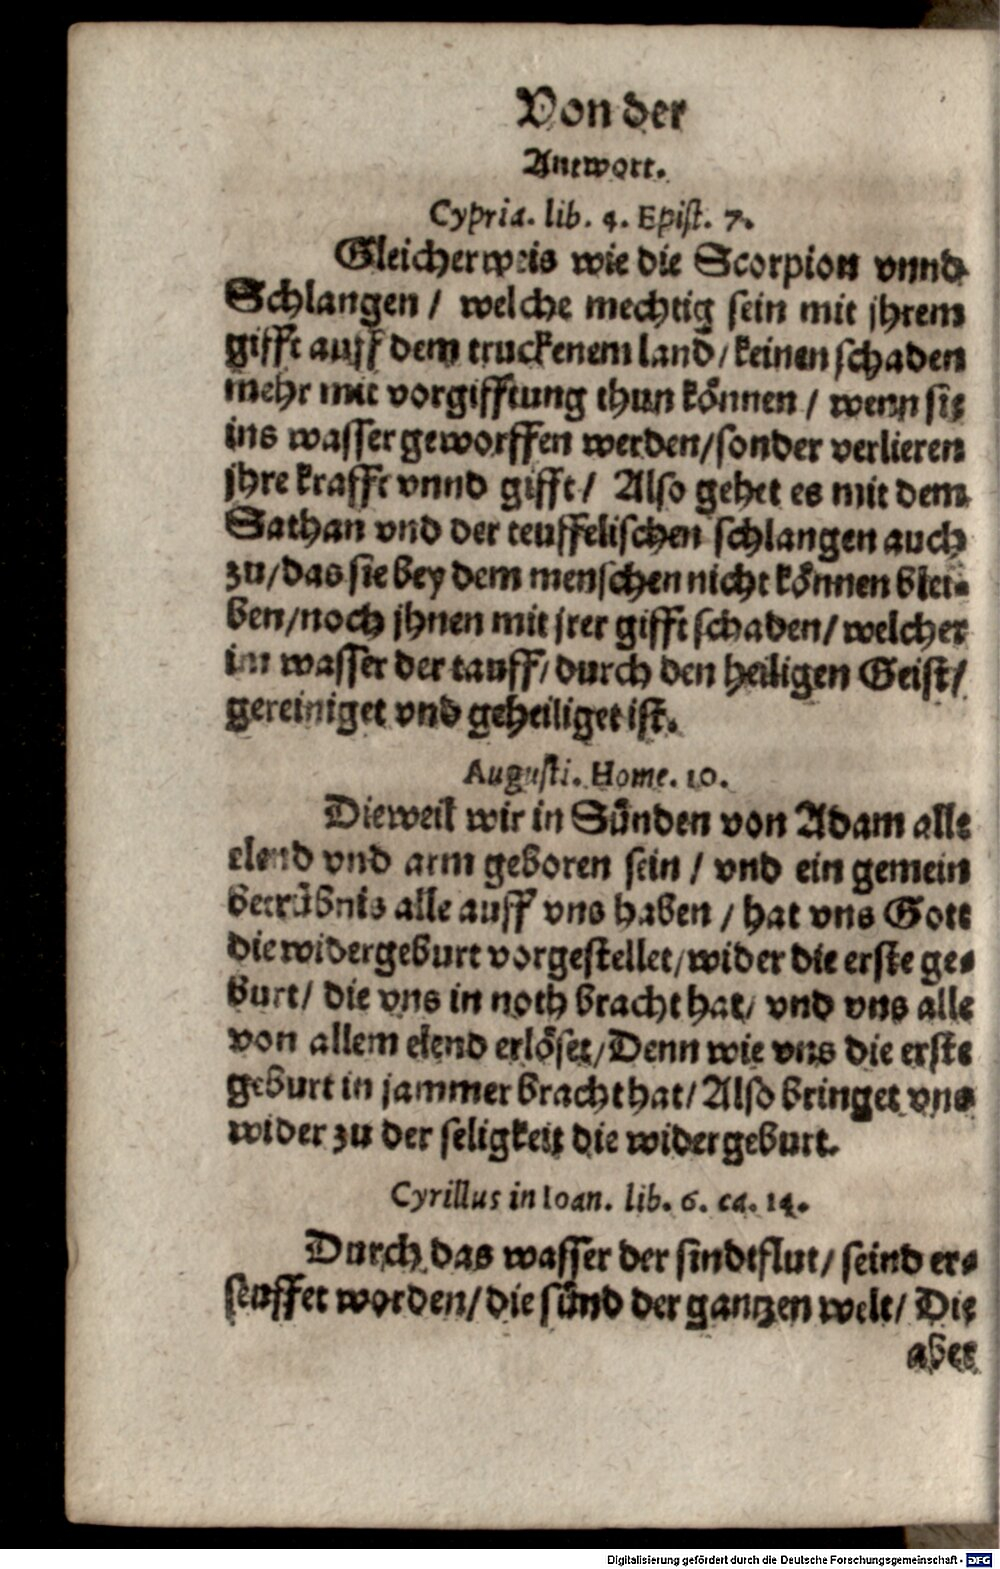 Von der
Antwort.
Cypria. lib. 4. Epist. 7.
Gleicherweis wie die Scorpion vnnd
Schlangen / welche mechtig sein mit jhrem
gifft auff dem truckenem land / keinen schaden
mehr mit vorgifftung thun können / wenn sie
ins wasser geworffen werden / sonder verlieren
jhre krafft vnnd gifft / Also gehet es mit dem
Sathan vnd der teuffelischen schlangen auch
zu / das sie bey dem menschen nicht können blei-
ben / noch jhnen mit jrer gifft schaden / welcher
im wasser der tauff / durch den heiligen Geist /
gereiniget vnd geheiliget ist.
Augusti. Home. 10.
Dieweil wir in Sünden von Adam alle
elend vnd arm geboren sein / vnd ein gemein
betrübnis alle auff vns haben / hat vns Gott
die widergeburt vorgestellet / wider die erste ge-
burt / die vns in noth bracht hat / vnd vns alle
von allem elend erlöset / Denn wie vns die erste
geburt in jammer bracht hat / Also bringet vns
wider zu der seligkeit die widergeburt.
Cyrillus in Ioan. lib. 6. ca. 14.
Durch das wasser der sindtflut / seind er-
seuffet worden / die sünd der gantzen welt / Die
aber
Digitalisierung gefördert durch die Deutsche Forschungsgemeinschaft - DFG